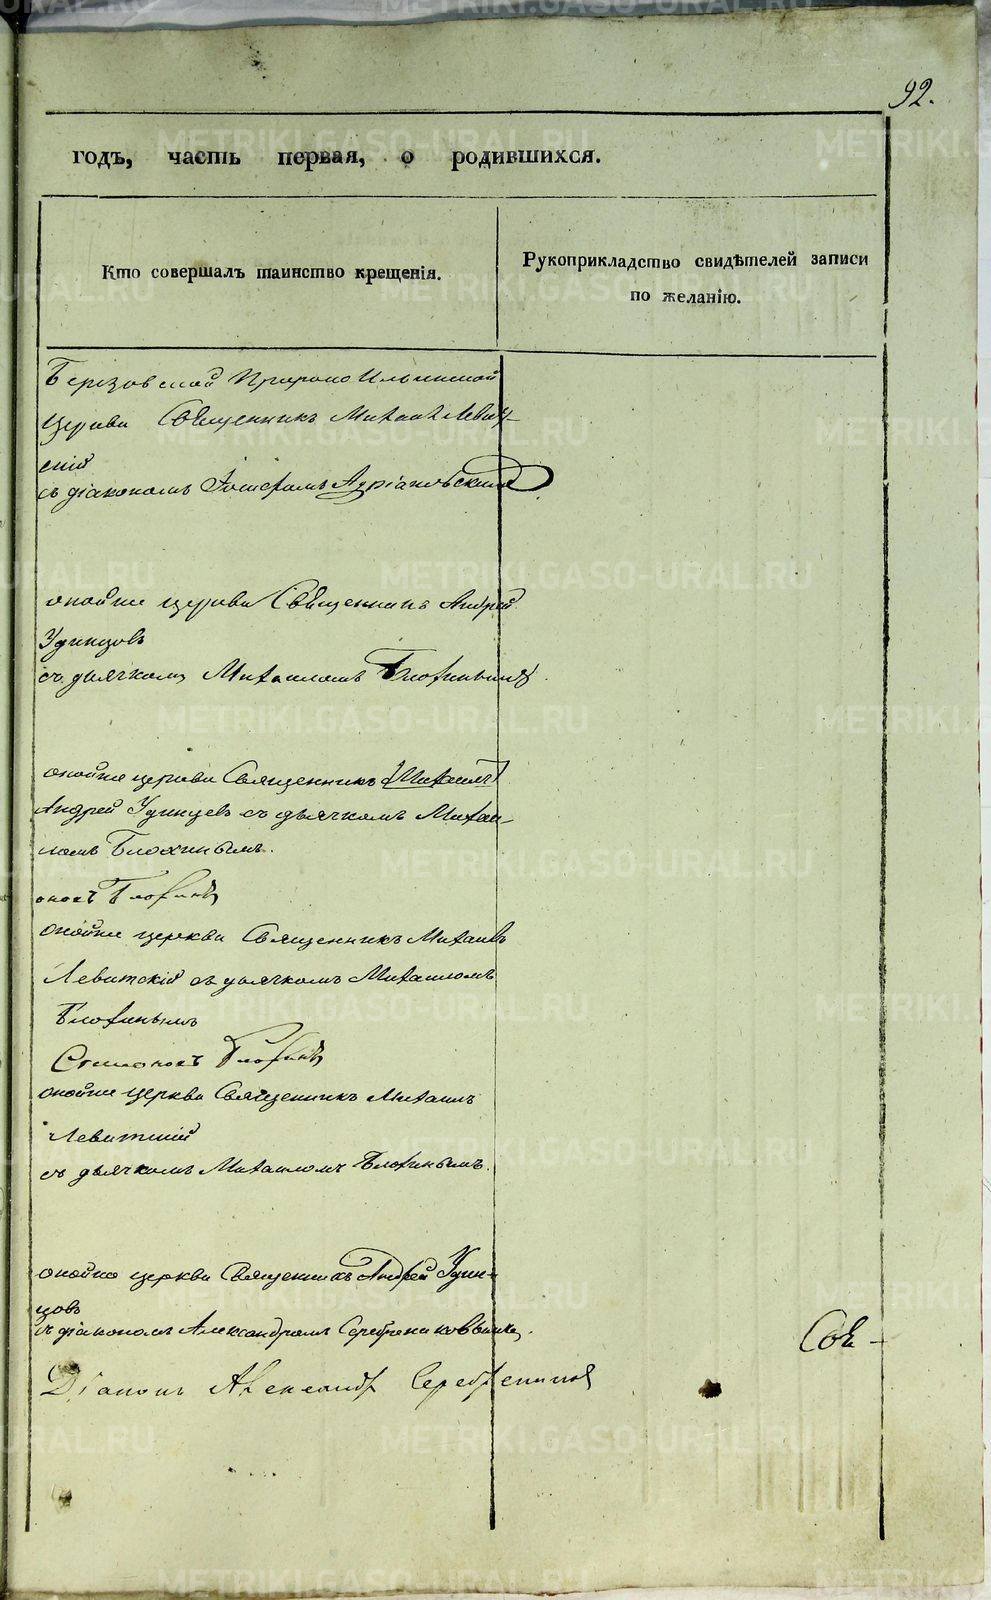 92.
годъ, часть первая, о родившихся.
Кто совершалъ таинство крещенія.
Рукоприкладство свидѣтелей записи
по желанію.
Березовской Пророко Ильинской
Церкви Священникъ Михаилъ Левит-
скій
съ діакономъ Іосифомъ
оной же церкви Священникъ Андрей
Удинцовъ
съ дьячкомъ Михаиломъ Блохинымъ.
оной же церкви Священникъ (Михаилъ)
Андрей Удинцевъ съ дьячкомъ Михаи-
ломъ Блохинымъ.
Блохинъ
оной же церкви Священникъ Михаилъ
Левитскій съ дьячкомъ Михаиломъ
Блохинымъ
Блохинъ
оной же церкви Священникъ Михаилъ
Левитскій
съ дьячкомъ Михаиломъ Блохинымъ.
оной же церкви Священникъ Андрей Удин-
цовъ
съ діакономъ Александромъ Серебрениковымъ.
Діаконъ Александръ Серебрениковъ
METRIKI.GASO-URAL.RU